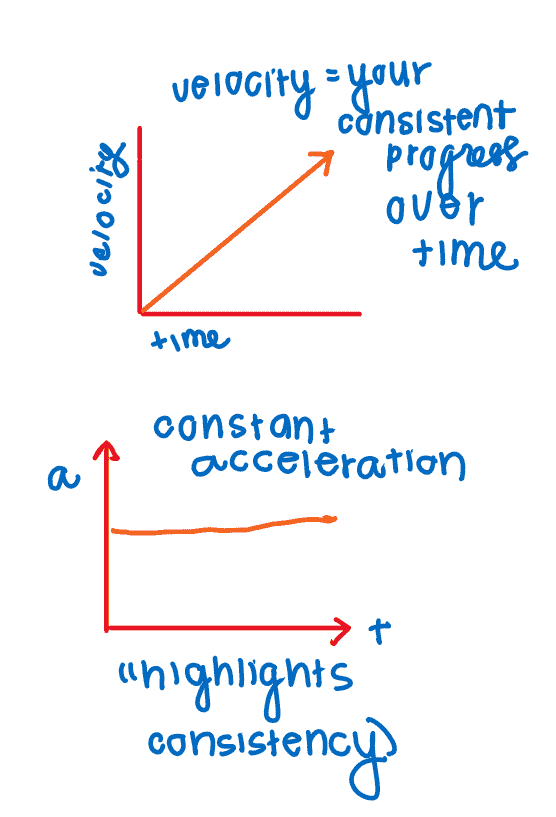 velocity = your
consistent
progress
over
time
velocity
time
constant
acceleration
a
t
"highlights
consistency)